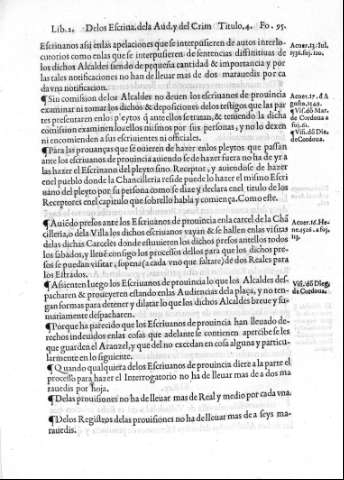 Lib. 2. Delos Escriua. dela Aud. y del Crim Titulo, 4. Fo. 95.
Escriuanos assi enlas apelaciones que se interpusieren de autos interlo-
cutorios como enlas que se interpusieren de sentencias diffinitiuas de
los dichos Alcaldes siendo de pequeña cantidad & importancia y por
las tales notificaciones no han de lleuar mas de dos marauedis por ca
da vna notificacion.
Acuer. 13. Iul.
1536. foj. 120.
¶Sin comission delos Alcaldes no deuen los escriuanos de prouincia
examinar ni tomar los dichos & deposiciones delos testigos que las par
tes presentaren enlos pleytos q̃ ante ellos se tratan, & teniendo la dicha
comission examinen los ellos mismos por sus personas, y no lo dexen
ni encomienden a sus escriuientes ni officiales.
Acuer. 17. d̃ A
gosto. 1542.
¶Vis. dõ Mar.
de Cordoua a
foj. 61.
¶Vis. dõ Die.
de Cordoua.
¶Para las prouanças que se ouieren de hazer enlos pleytos que passan
ante los escriuanos de prouincia auiendo se de hazer fuera no ha de yr a
las hazer el Escriuano del pleyto sino Receptor, y auiendose de hazer
enel pueblo donde la Chancilleria reside puede lo hazer el mismo Escri
uano del pleyto por su persona como se dize y declara enel titulo de los
Receptores enel capitulo que sobrello habla y comiença. Como este.
¶Auiẽdo presos ante los Escriuanos de prouincia enla carcel dela Chã
cilleria, o dela Villa los dichos escriuanos vayan & se hallen enlas visitas
delas dichas Carceles donde estuuieren los dichos presos antellos todos
los sabados, y lleuẽ consigo los processos dellos para que los dichos pre-
sos se puedan visitar, sopena (a cada vno que faltare) de dos Reales para
los Estrados.
Acuer. 16. He-
ne. 1526. a foj.
113.
¶Assienten luego los Escriuanos de prouincia lo que los Alcaldes des-
pacharen & proueyeren estando enlas Audiencias dela plaça, y no ten-
gan formas para detener y dilatar lo que los dichos Alcaldes breue y su-
mariamente despacharen.
Vis. dõ Dieg.
de Cordoua.
¶Porque ha parecido que los Escriuanos de prouincia han lleuado de-
rechos indeuidos enlas cosas que adelante se contienen apercibese les
que guarden el Aranzel, y que del no excedan en cosa alguna y particu-
larmente en lo siguiente.
¶Quando qualquiera delos Escriuanos de prouincia diere a la parte el
processo para hazer el Interrogatorio no ha de lleuar mas de a dos ma
rauedis por hoja.
¶Delas prouisiones no ha de lleuar mas de Real y medio por cada vna.
¶Delos Registros delas prouisiones no ha de lleuar mas de a seys ma-
rauedis.